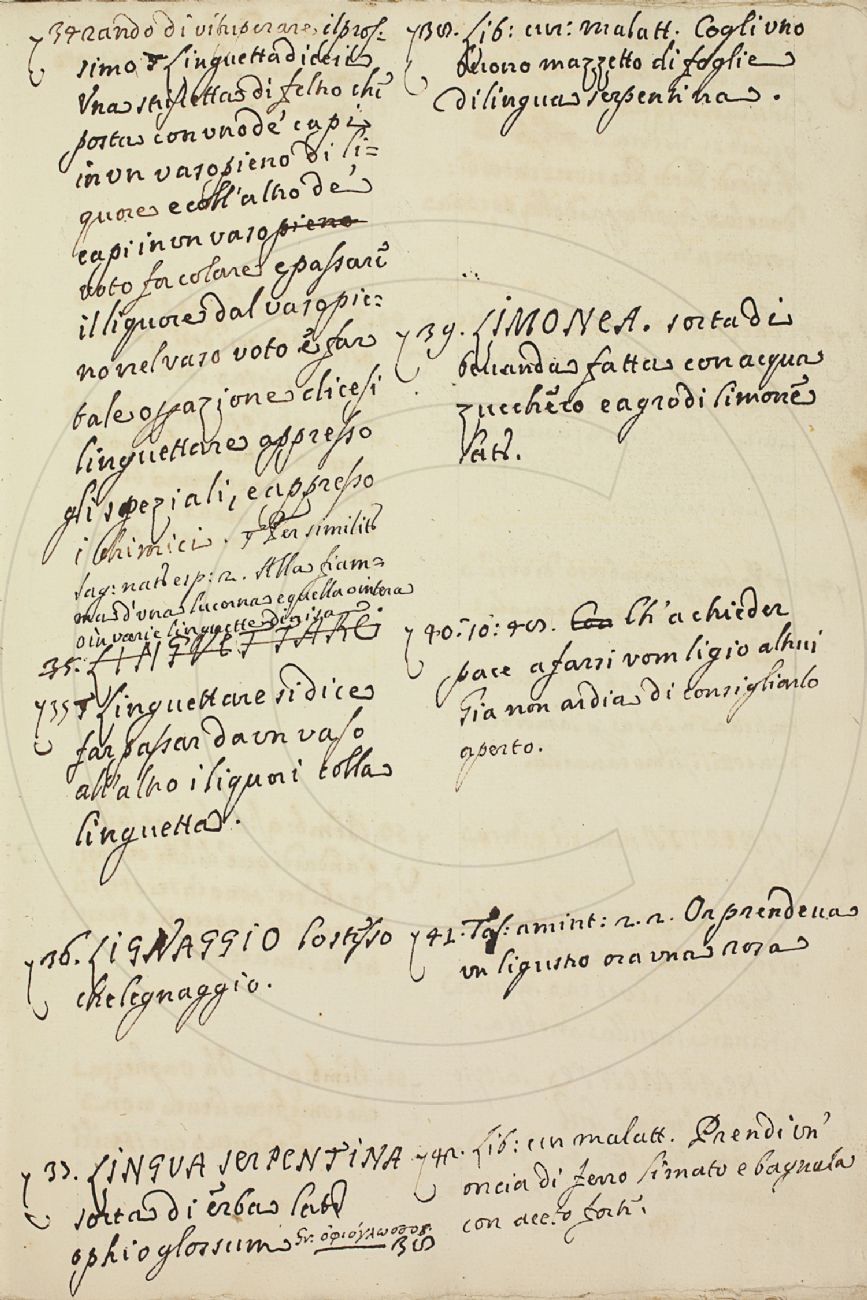 34 rando di vituperare il pros-
simo ┬ Linguetta dicesi
Una strisletta di feltro chē
posta con uno de' capi
in un vaso pieno di li=
quore e coll'altro de'
capi in un vaso pieno
voto fa colare e passarē
il liquore dal vaso pie=
no nel vaso voto ē far
tale opazione dicesi
linguettare appresso
gli speziali, e appresso
i chimici. ┬ Per similit.
Sag: nat: esp: 2. Alla fiam=
ma d'una lucerna e quella o intera
o in varie linguette divisa
35. LINGUETTARE
35 ┬ Linguettare si dice
far passar da un vaso
all'altro i liquori colla
linguetta.
36. LIGNAGGIO Lo stesso
che legnaggio.
33. LINGUA SERPENTINA
sorta di erba lat.
ophioglossum Gr. ὀφιόγλωσσον.
38
38. Lib: cur: malatt. Cogli uno
buono mazzetto di foglie
di lingua serpentina.
39. LIMONEA. sorta di
bevanda fatta con acqua
zucchēro e agro di limonē
lat.
40. 10: 40. Con Ch'a chieder
pace a farsi vom ligio altrui
Gia non ardia di consigliarlo
aperto.
41. Tas: amint: 2. 2. Or prendeua
un ligustro ora una rosa
42. Lib: cur malatt. Prendi un'
oncia di ferro limato e bagnala
con aceto fortē.